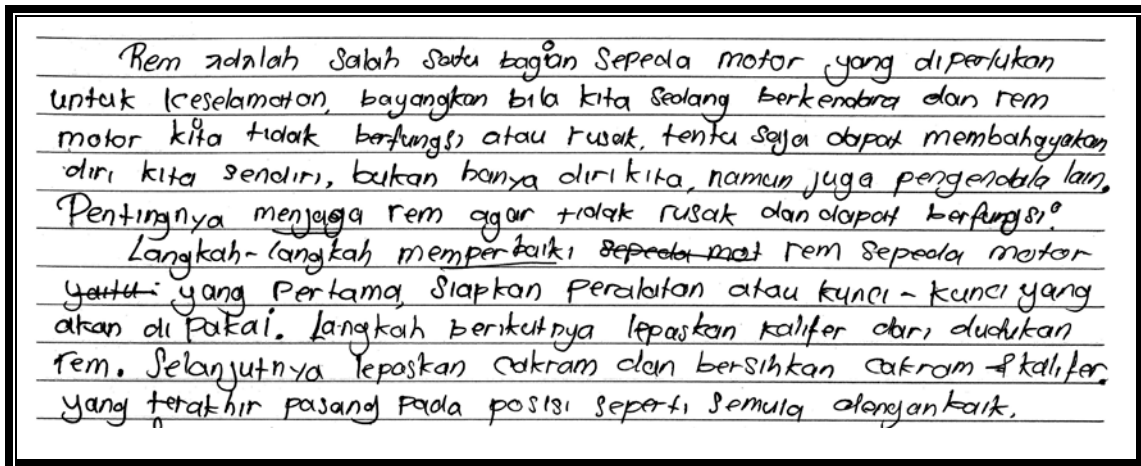 Rem adalah salah satu bagian sepeda motor yang diperlukan
untuk keselamatan, bayangkan bila kita sedang berkendara dan rem
motor kita tidak berfungsi atau rusak, tentu saja dapat membahayakan
diri kita sendiri, bukan hanya diri kita, namun juga pengendara lain.
Pentingnya menjaga rem agar tidak rusak dan dapat berfungsi.
Langkah-langkah memperbaiki sepeda mot rem sepeda motor
yaitu: yang pertama, siapkan peralatan atau kunci-kunci yang
akan di pakai. Langkah berikutnya lepaskan kalifer dari dudukan
rem. Selanjutnya lepaskan cakram dan bersihkan cakram & kalifer.
yang terakhir pasang pada posisi seperti semula dengan baik.